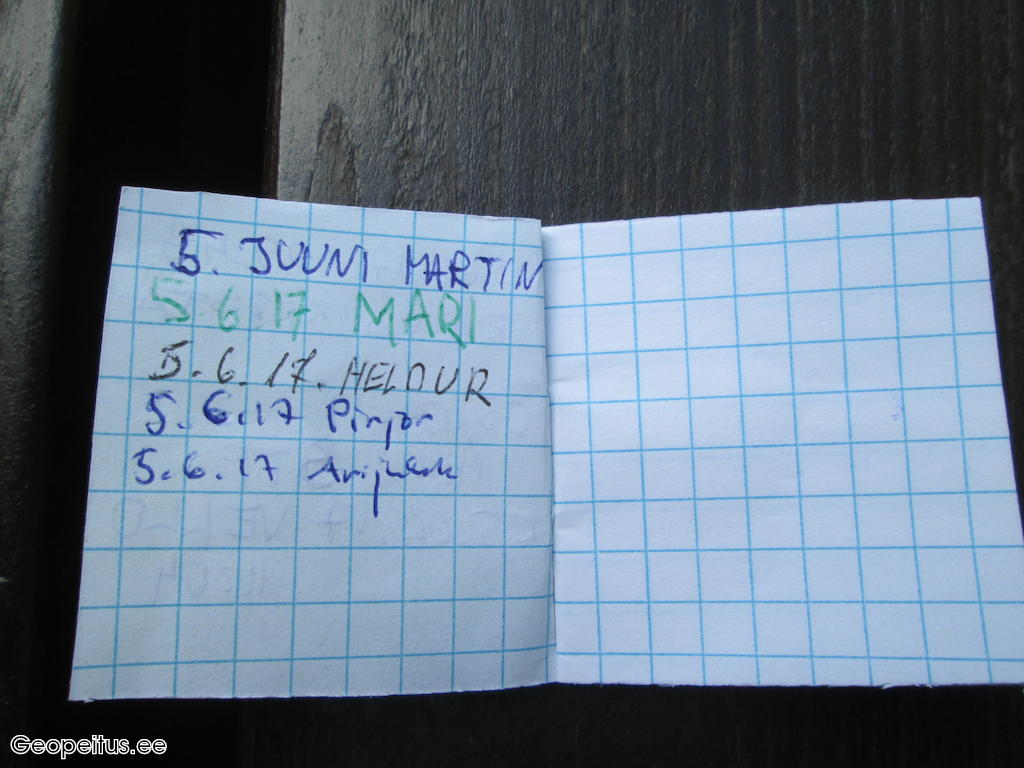 5. JUUNI MARTIN
5.6.17 MARI
5.6.17. HELDUR
5.6.17 Pinjar
5.6.17
Geopeitus.ee